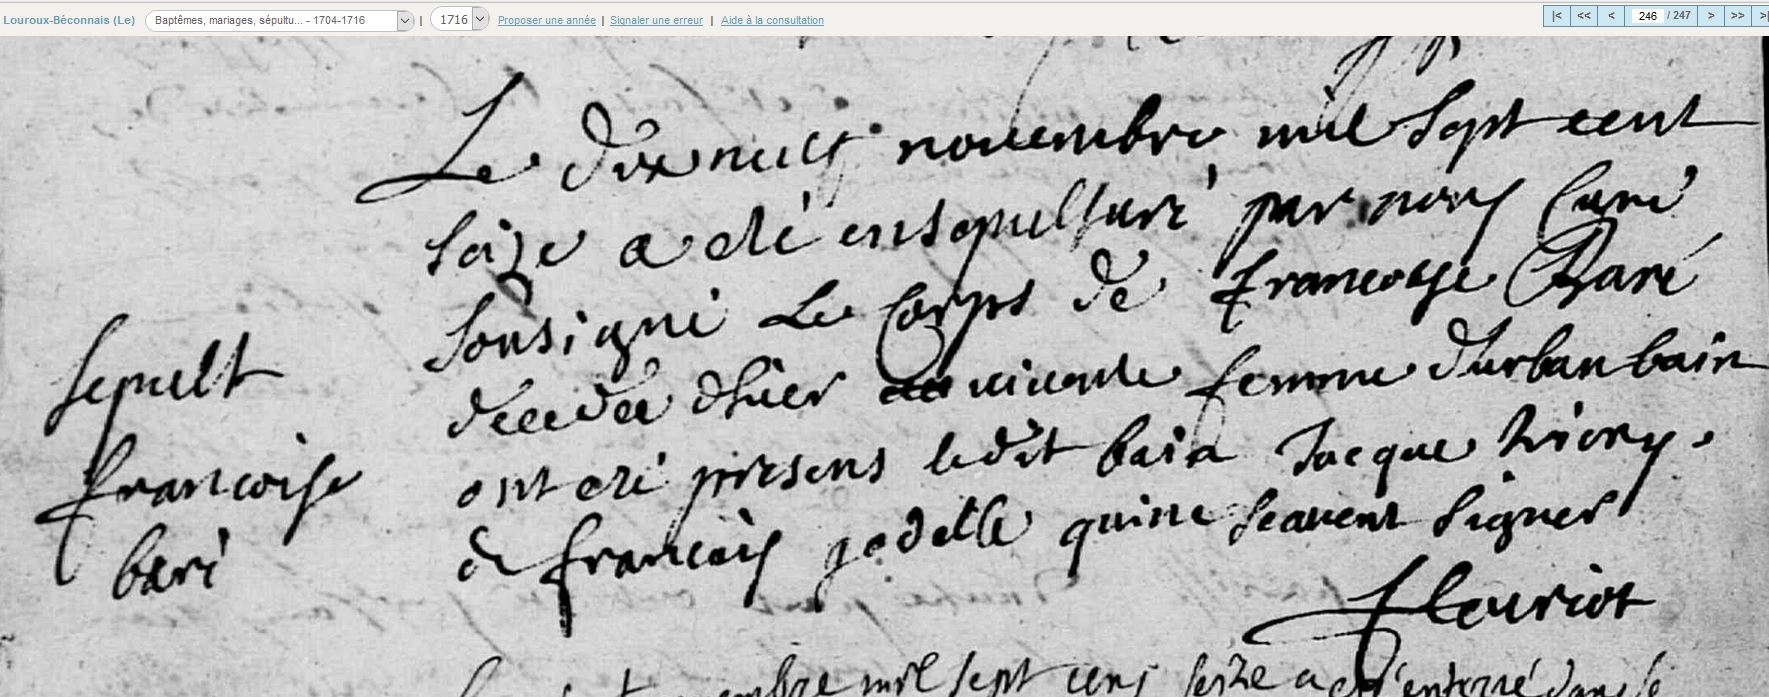 Louroux-Béconnais (Le) Baptêmes, mariages, sépultu... - 1704-1716 | 1716 Proposer une année | Signaler une erreur | Aide à la consultation |< << < 246 / 247 > >> >|
Le dixneuf nouembre mil sept cent
saize a eté ensepulturé par nous Curé
sousigné Le Corps de francoise Baré
decedee dhier viuante femme durban bain
ont eté presens ledit bain Jacque
& francois godelle quine scauent signer
fleuriot
sepult
francoise
baré
mil sept cens seize a été enterré dans le